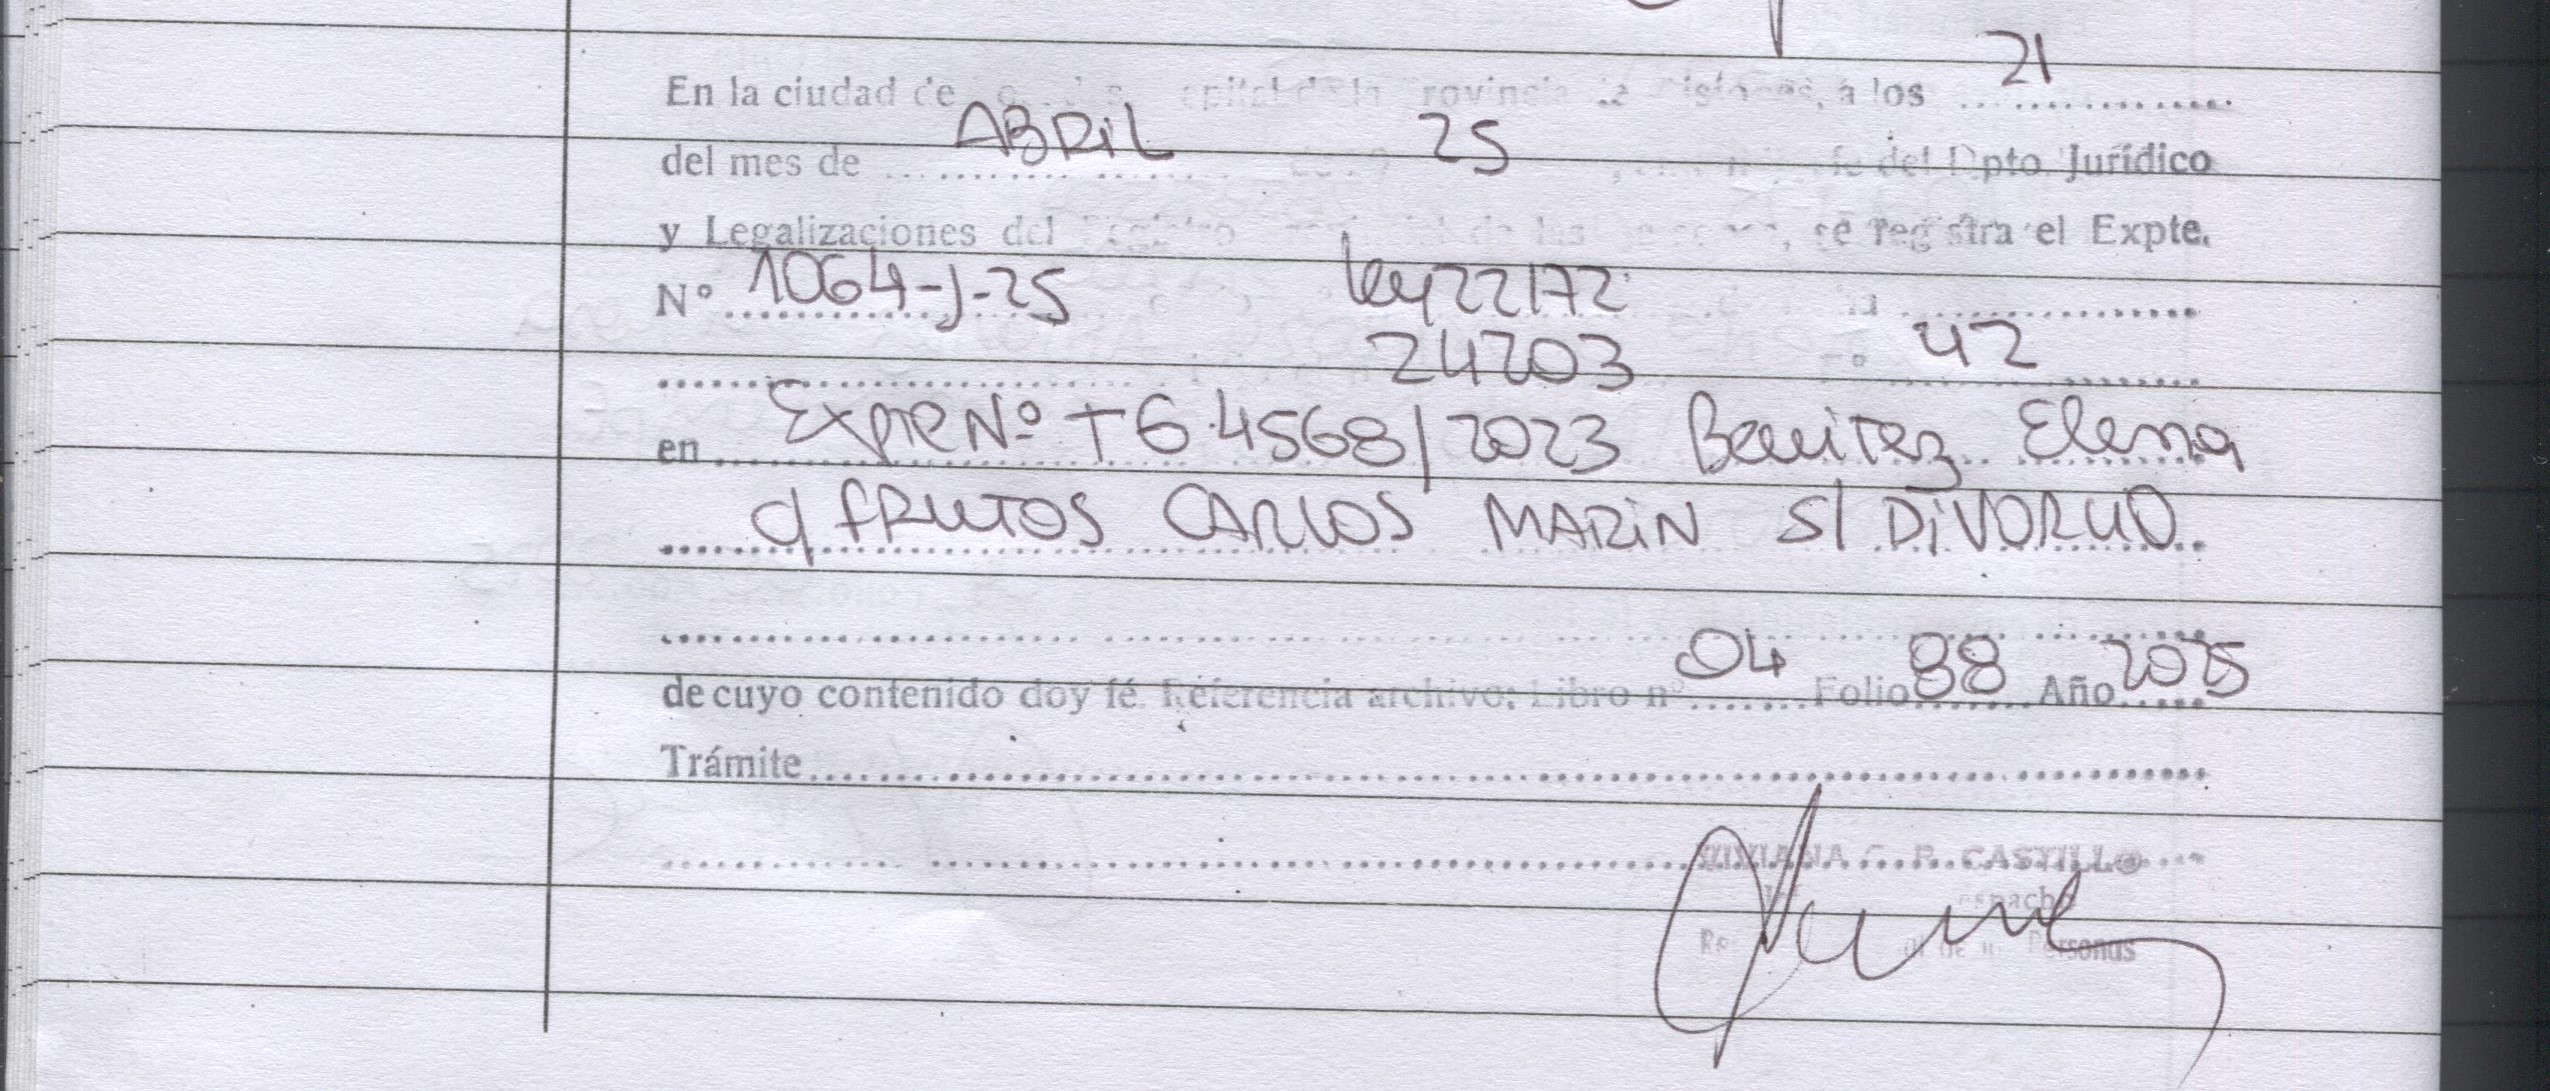 En la ciudad de capital de la Provincia de Misiones, a los 21
del mes de ABRIL 25 Jefe del Dpto. Jurídico
y Legalizaciones del Registro Provincial de las Personas, se registra el Expte.
Nº 1064-J-25 ley 22172
24203 42
en Expte Nº 76.4568/2023 Benitez Elena
c/ FRUTOS CARLOS MARIN S/ DIVORCIO
de cuyo contenido doy fé. Referencia archivo: Libro nº 04 Folio 88 Año 2025
Trámite
C. R. CASTILLO
Despacho
Personas